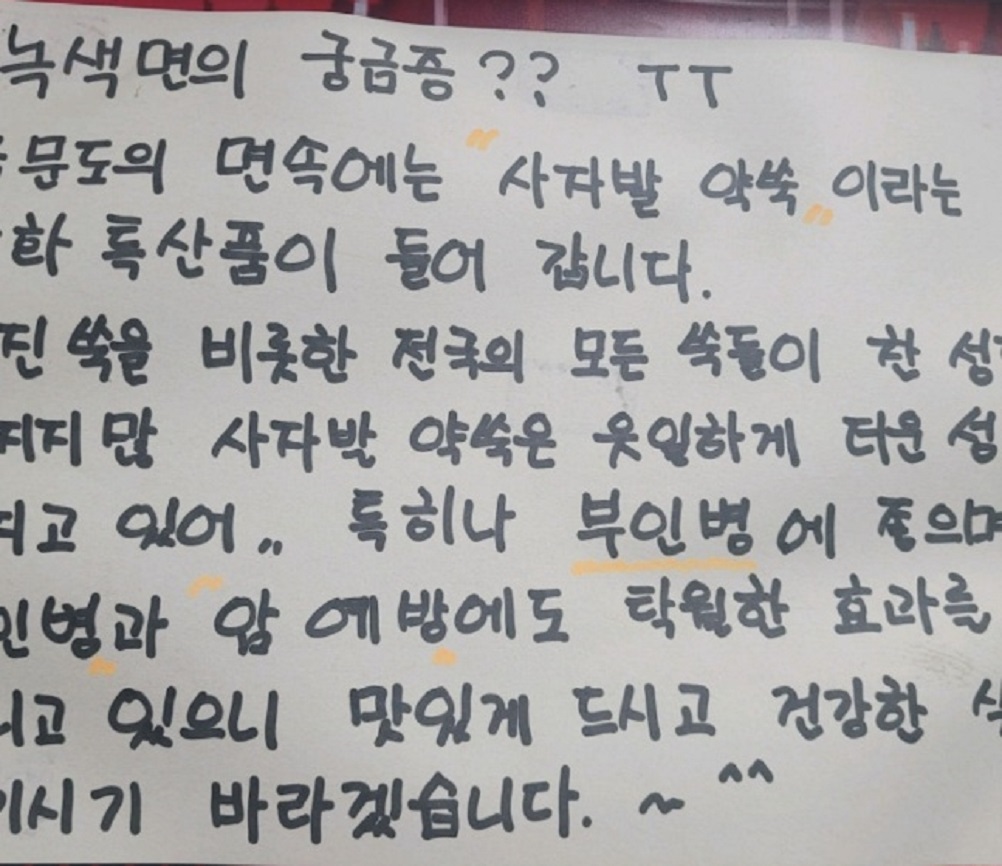 녹색면의 궁금증?? ㅜㅜ
문도의 면속에는 "사자발 약쑥" 이라는
화 특산품이 들어 갑니다.
진 쑥을 비롯한 전국의 모든 쑥들이 찬
지지만 사자발 약쑥은 유일하게 더운 성
있어.. 특히나 부인병에 좋으며
인병과 "암 예방에도 탁월한 효과를
있으니 맛있게 드시고 건강한
시기 바라겠습니다. ~ ^^